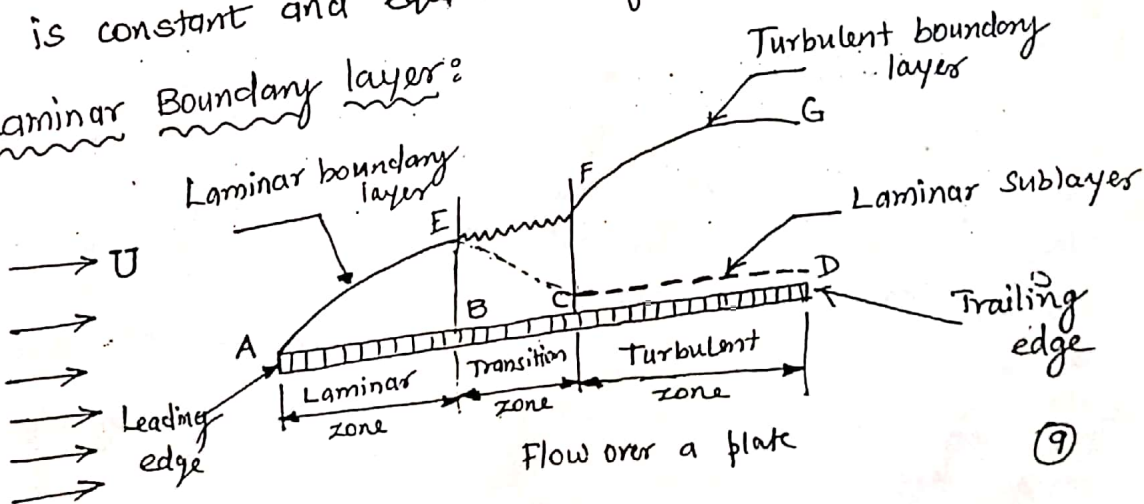 is constant and
aminar Boundary layer:
Turbulent boundary
layer
Laminar boundary
layer
E
F
G
Laminar Sublayer
U
A
B
C
D
Trailing
edge
Laminar
zone
Transition
zone
Turbulent
zone
Leading
edge
Flow over a plate
9